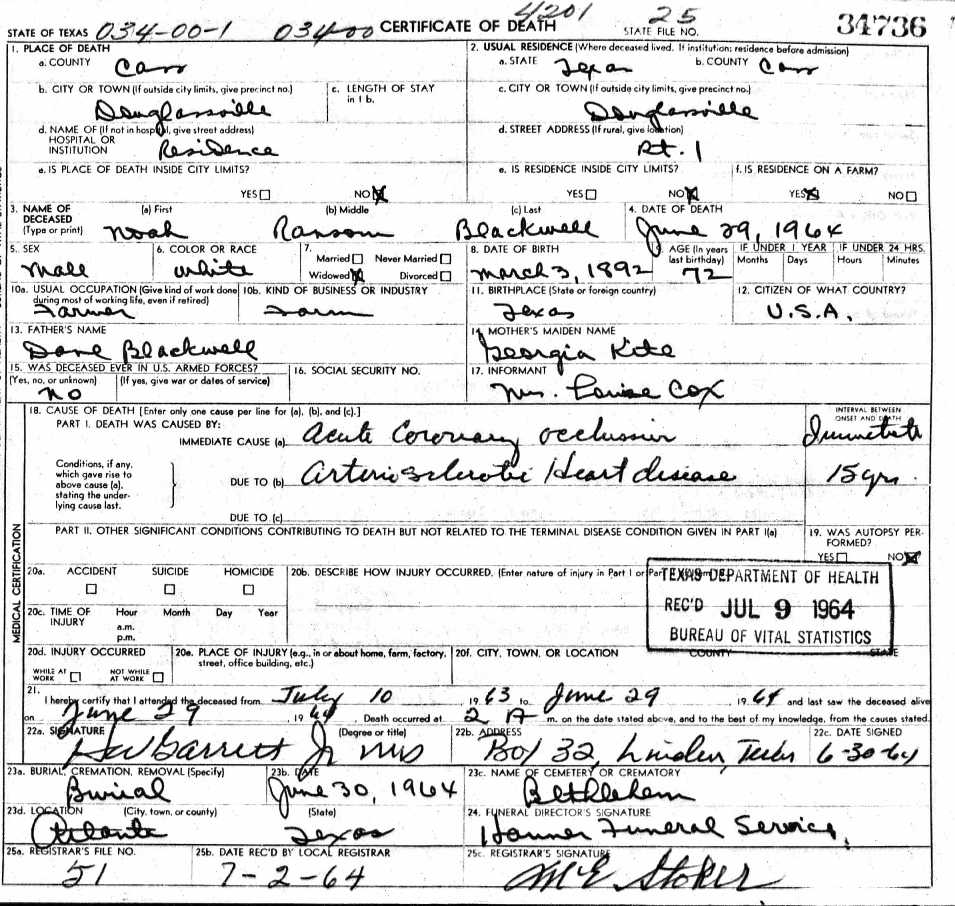 4201 25 34736
STATE OF TEXAS 034-00-1 034-00 CERTIFICATE OF DEATH STATE FILE NO.
1. PLACE OF DEATH
a. COUNTY Cass
2. USUAL RESIDENCE (Where deceased lived. If institution: residence before admission)
a. STATE Texas b. COUNTY Cass
b. CITY OR TOWN (If outside city limits, give precinct no.)
Douglassville
c. LENGTH OF STAY
in 1 b.
c. CITY OR TOWN (If outside city limits, give precinct no.)
Douglassville
d. NAME OF (If not in hospital, give street address)
HOSPITAL OR
INSTITUTION Residence
d. STREET ADDRESS (If rural, give location)
Rt. 1
e. IS PLACE OF DEATH INSIDE CITY LIMITS?
YES NO X
e. IS RESIDENCE INSIDE CITY LIMITS?
YES NO X
f. IS RESIDENCE ON A FARM?
YES X NO
3. NAME OF
DECEASED
(Type or print)
(a) First (b) Middle (c) Last
Noah Ransom Blackwell
4. DATE OF DEATH
June 29, 1964
5. SEX
Male
6. COLOR OR RACE
White
7.
Married Never Married
Widowed X Divorced
8. DATE OF BIRTH
March 3, 1892
9. AGE (In years
last birthday)
72
IF UNDER 1 YEAR IF UNDER 24 HRS.
Months Days Hours Minutes
10a. USUAL OCCUPATION (Give kind of work done
during most of working life, even if retired)
Farmer
10b. KIND OF BUSINESS OR INDUSTRY
Farm
11. BIRTHPLACE (State or foreign country)
Texas
12. CITIZEN OF WHAT COUNTRY?
U.S.A.
13. FATHER'S NAME
Dave Blackwell
14. MOTHER'S MAIDEN NAME
Georgia Kite
15. WAS DECEASED EVER IN U.S. ARMED FORCES?
(Yes, no, or unknown) (If yes, give war or dates of service)
No
16. SOCIAL SECURITY NO.
17. INFORMANT
Mrs. Louise Cox
MEDICAL CERTIFICATION
18. CAUSE OF DEATH [Enter only one cause per line for (a), (b), and (c).]
PART I. DEATH WAS CAUSED BY:
IMMEDIATE CAUSE (a) Acute Coronary occlusion
INTERVAL BETWEEN
ONSET AND DEATH
Conditions, if any,
which gave rise to
above cause (a),
stating the under-
lying cause last.
DUE TO (b) Arteriosclerotic Heart disease 15 yrs.
DUE TO (c)
PART II. OTHER SIGNIFICANT CONDITIONS CONTRIBUTING TO DEATH BUT NOT RELATED TO THE TERMINAL DISEASE CONDITION GIVEN IN PART I(a)
19. WAS AUTOPSY PER-
FORMED?
YES NO X
20a. ACCIDENT SUICIDE HOMICIDE
20b. DESCRIBE HOW INJURY OCCURRED. (Enter nature of injury in Part I or Part
TEXAS DEPARTMENT OF HEALTH
REC'D JUL 9 1964
BUREAU OF VITAL STATISTICS
20c. TIME OF
INJURY
Hour Month Day Year
a.m.
p.m.
20d. INJURY OCCURRED
WHILE AT
WORK
NOT WHILE
AT WORK
20e. PLACE OF INJURY (e.g., in or about home, farm, factory,
street, office building, etc.)
20f. CITY, TOWN, OR LOCATION COUNTY STATE
21.
I hereby certify that I attended the deceased from July 10 1963 to June 29 1964 and last saw the deceased alive
on June 29 1964 Death occurred at 2 A m. on the date stated above, and to the best of my knowledge, from the causes stated.
22a. SIGNATURE (Degree or title)
Garrett Jr
22b. ADDRESS
Box 32, Linden, Texas
22c. DATE SIGNED
6-30-64
23a. BURIAL, CREMATION, REMOVAL (Specify)
Burial
23b. DATE
June 30, 1964
23c. NAME OF CEMETERY OR CREMATORY
Bethlehem
23d. LOCATION (City, town, or county) (State)
Atlanta Texas
24. FUNERAL DIRECTOR'S SIGNATURE
Hanner Funeral Service.
25a. REGISTRAR'S FILE NO.
51
25b. DATE REC'D BY LOCAL REGISTRAR
7-2-64
25c. REGISTRAR'S SIGNATURE
Stoker